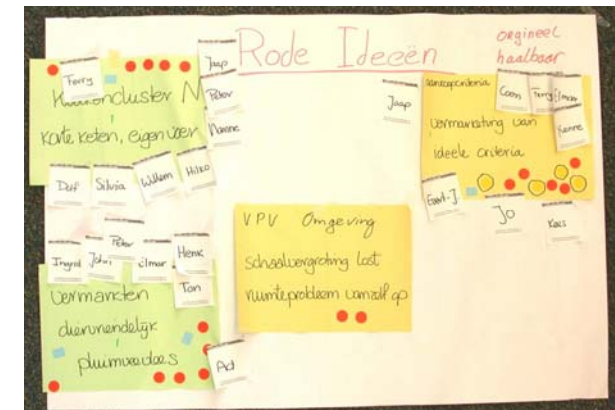 Rode Ideeën
origineel
haalbaar
Ferry
Jaap
Peter
Nanne
korte keten, eigen voer
Duif
Silvia
Willem
Hilko
Jaap
Coen
Ferry
Elmar
vermarkting van
ideële criteria
Jo
Kees
VPV Omgeving
schaalvergroting lost
ruimteprobleem vanzelf op
Ingrid
John
Peter
Elmar
Henk
Ton
Vermarkten
diervriendelijk
pluimveevlees
Ad